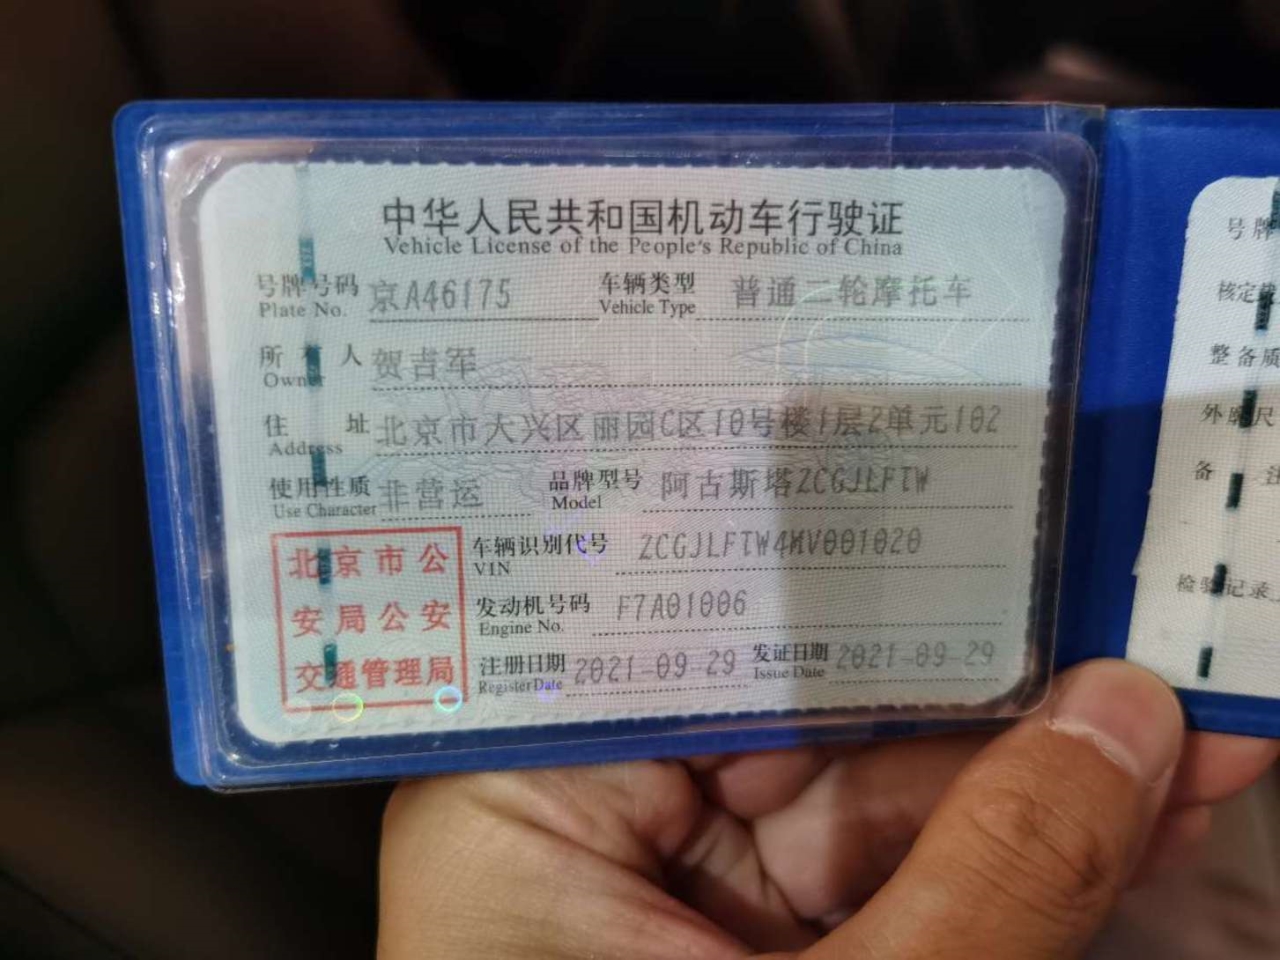 中华人民共和国机动车行驶证
Vehicle License of the People's Republic of China
号牌号码 京A46175 车辆类型 普通二轮摩托车
Plate No. Vehicle Type
所有人 贺吉军
Owner
住址 北京市大兴区丽园C区10号楼1层2单元102
Address
使用性质 非营运 品牌型号 阿古斯塔ZCGJLFTW
Use Character Model
北京市公
安局公安
交通管理局
车辆识别代号 ZCGJLFTW4MV001020
VIN
发动机号码 F7A01006
Engine No.
注册日期 2021-09-29 发证日期 2021-09-29
Register Date Issue Date
号牌
核定
整备质
外廓尺
备注
检验记录